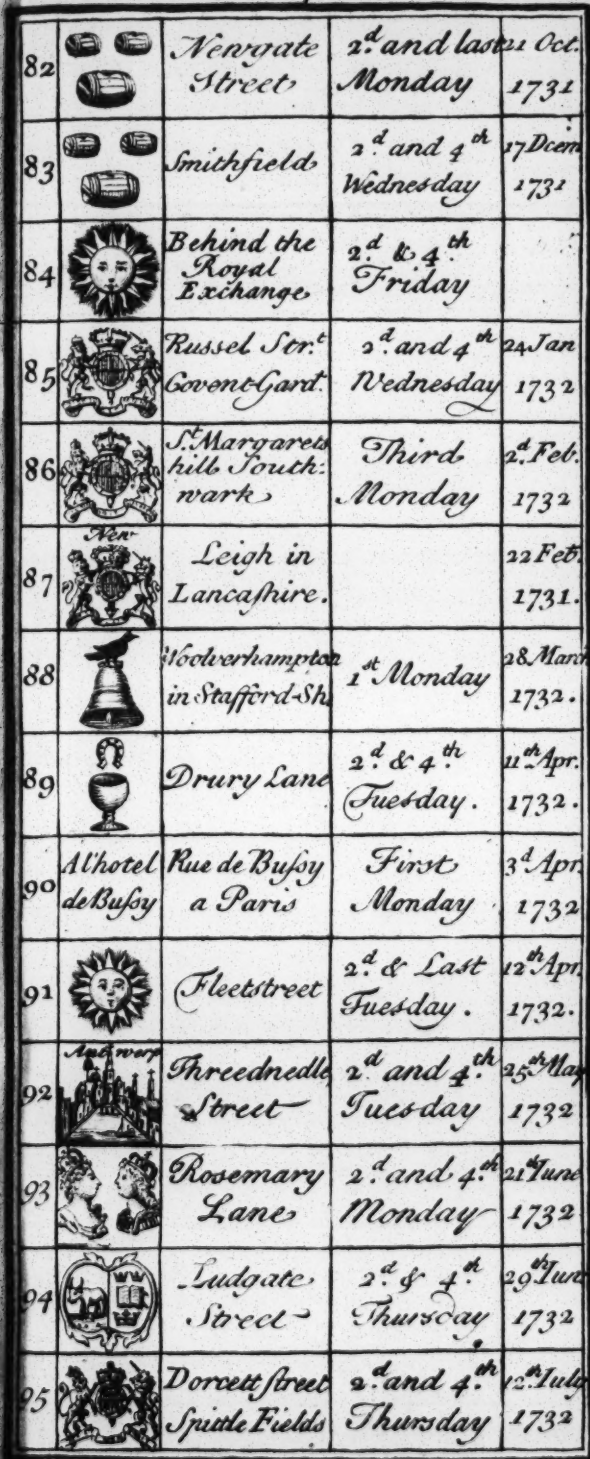 82 Newgate Street 2.d and last Monday 21 Oct. 1731
83 Smithfield 2.d and 4.th Wednesday 17 Dcem 1731
84 Behind the Royal Exchange 2.d & 4.th Friday
85 Russel Str.t Covent Gard.n 2.d and 4.th Wednesday 24 Jan 1732
86 S.t Margarets hill South: wark Third Monday 2.d Feb. 1732
87 New Leigh in Lancaſhire. 22 Feb. 1731.
88 Woolverhampton in Stafford-Sh. 1.st Monday 28 March 1732.
89 Drury Lane 2.d & 4.th Tuesday. 11.th Apr. 1732.
90 A l'hotel de Buſsy Rue de Buſsy a Paris First Monday 3.d Apr. 1732
91 Fleetstreet 2.d & Last Tuesday. 12.th Apr. 1732.
92 Antwerp Threednedle Street 2.d and 4.th Tuesday 25.th May 1732
93 Rosemary Lane 2.d and 4.th Monday 21.st June 1732
94 Ludgate Street 2.d & 4.th Thursday 29.th Jun 1732
95 Dorcett ſtreet Spittle Fields 2.d and 4.th Thursday 12.th July 1732